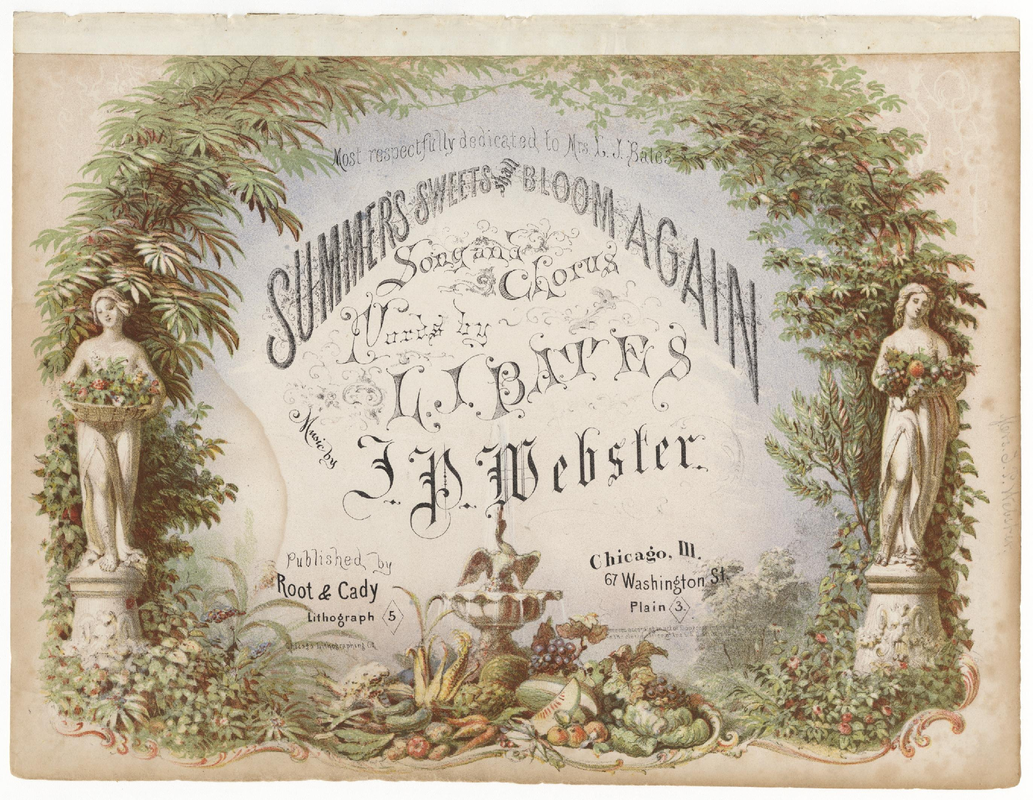 Most respectfully dedicated to Mrs L. J. Bates
SUMMER'S SWEETS shall BLOOM AGAIN
Song and
Chorus
Words by
L. J. BATES
Music by
J. P. Webster.
Published by
Root & Cady
Lithograph 5
Chicago, Ill.
67 Washington St.
Plain 3
Chicago Lithographing Co.